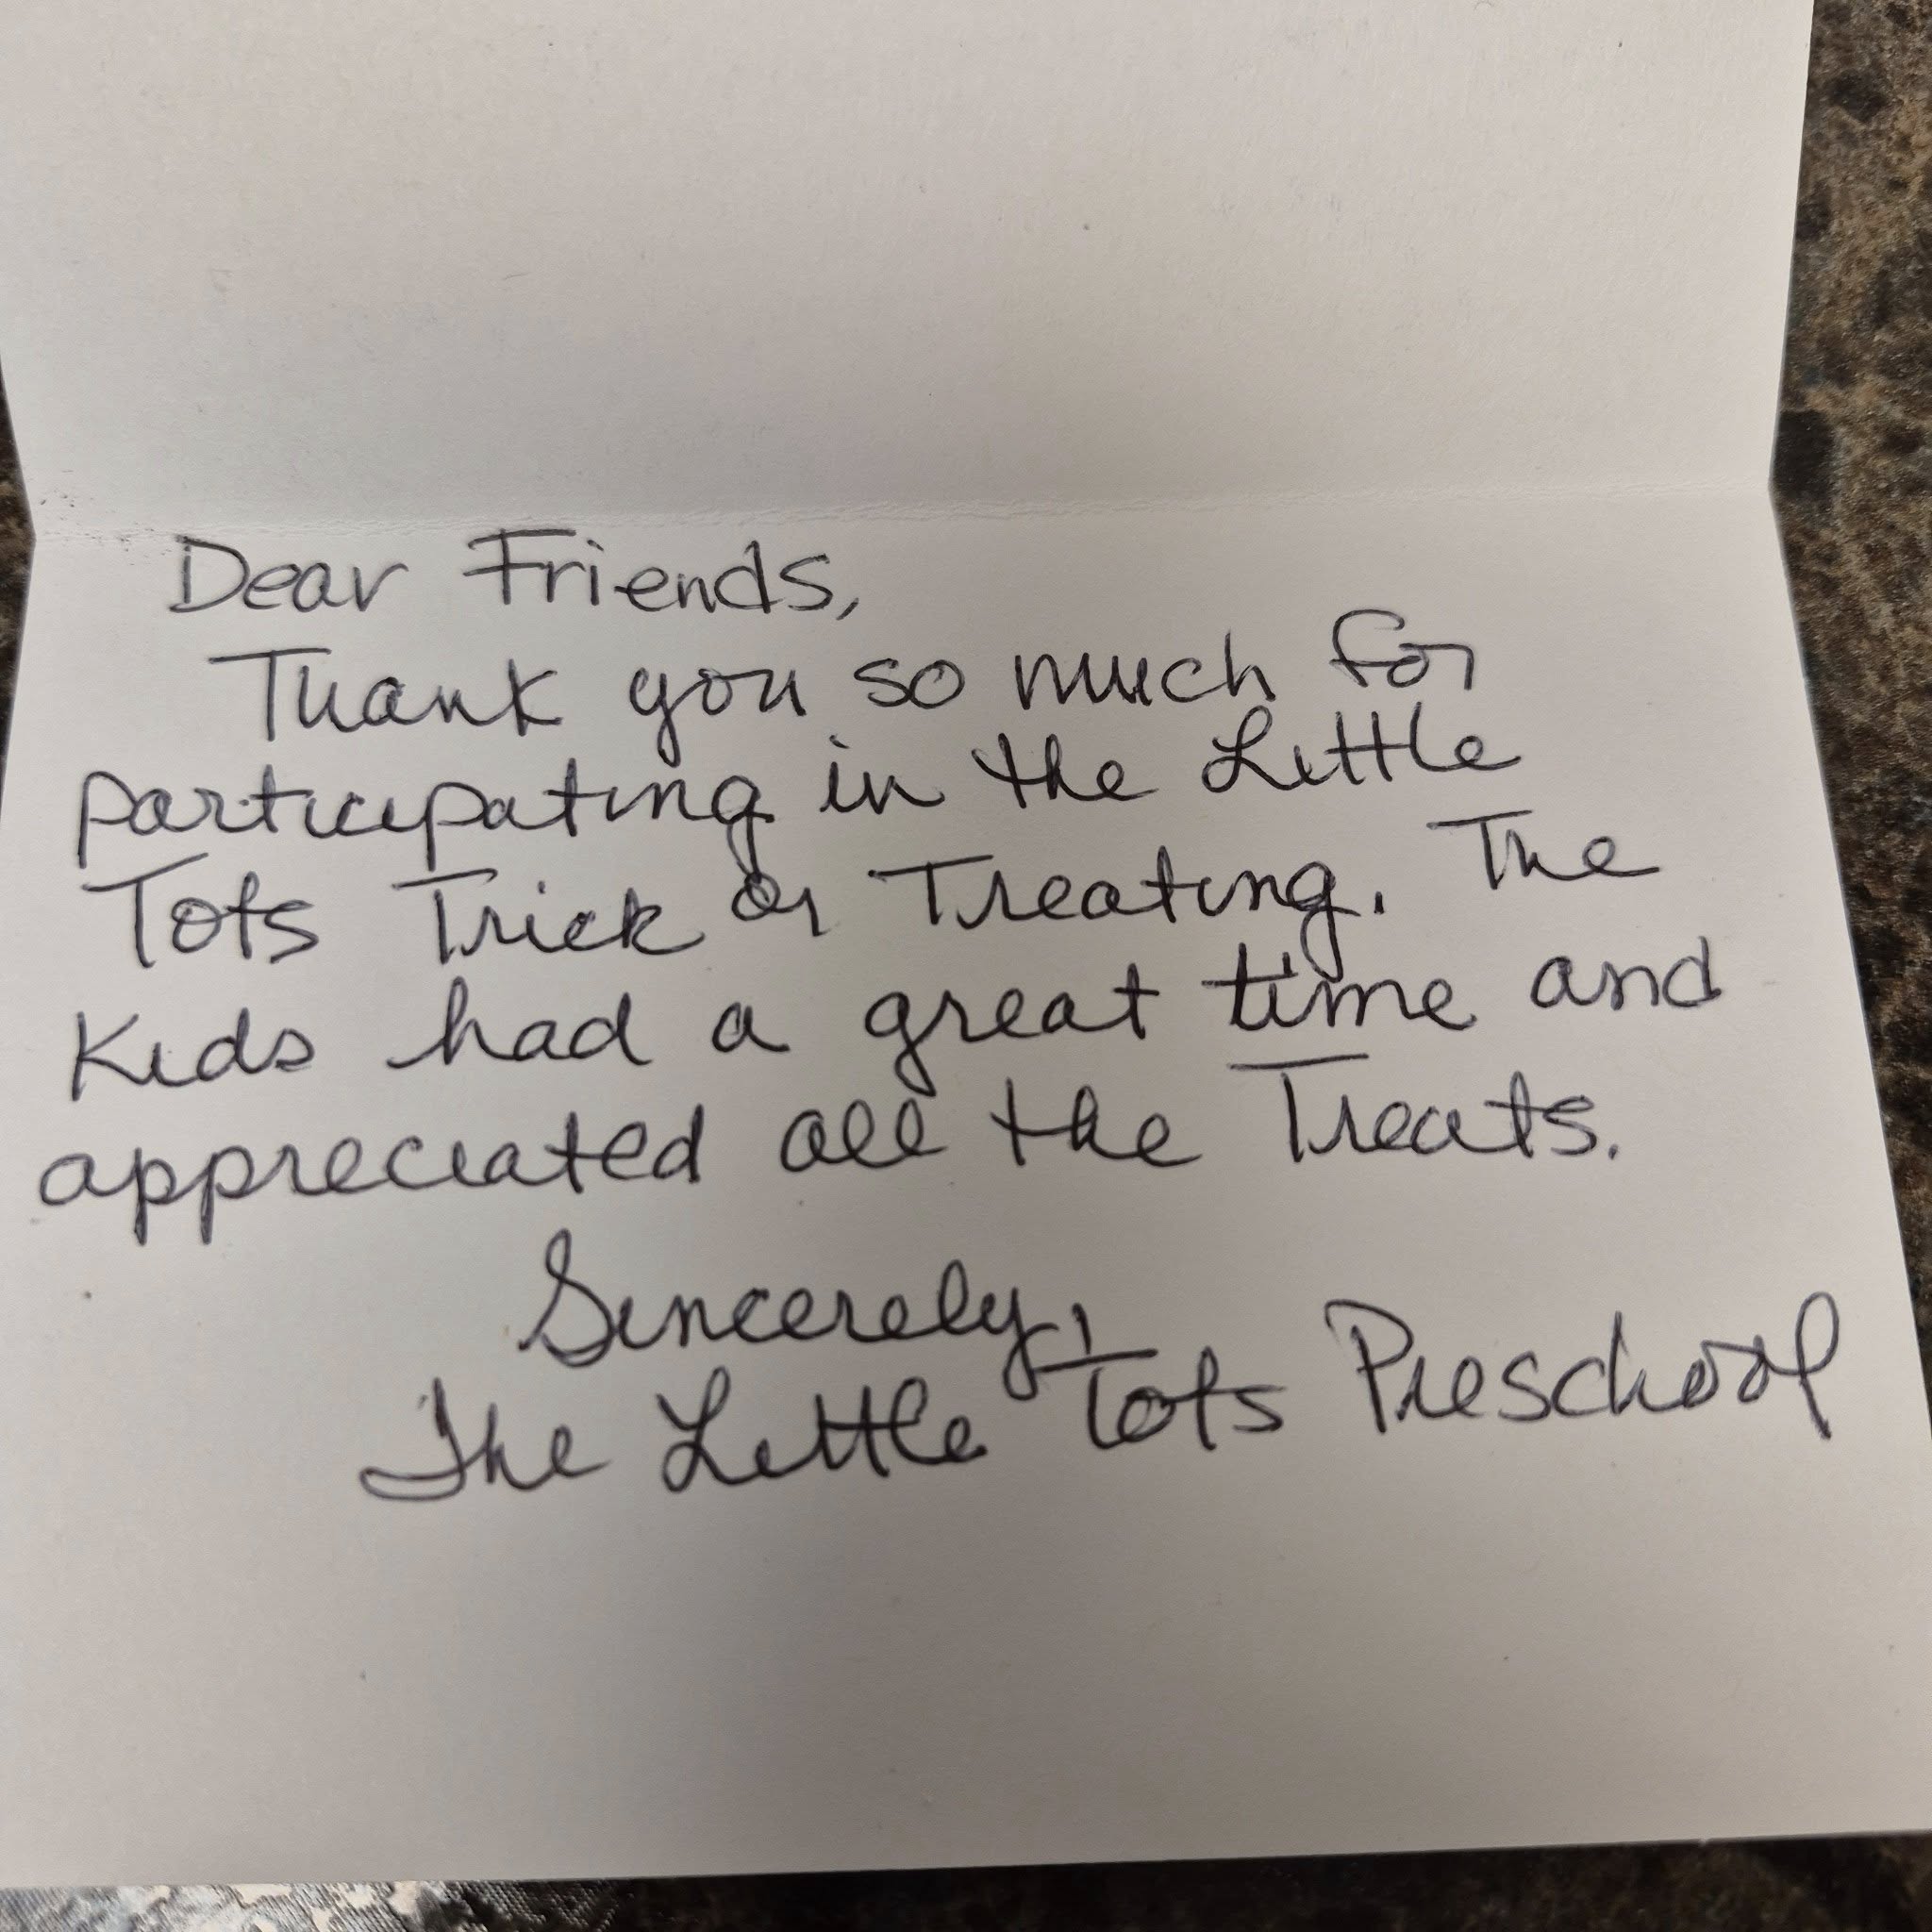 Dear Friends,
Thank you so much for
participating in the Little
Tots Trick or Treating. The
Kids had a great time and
appreciated all the Treats.
Sincerely,
The Little Tots Preschool